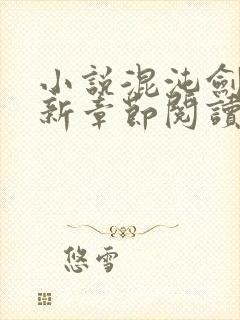 小說混沌劍
新章節閱讀
悠雪